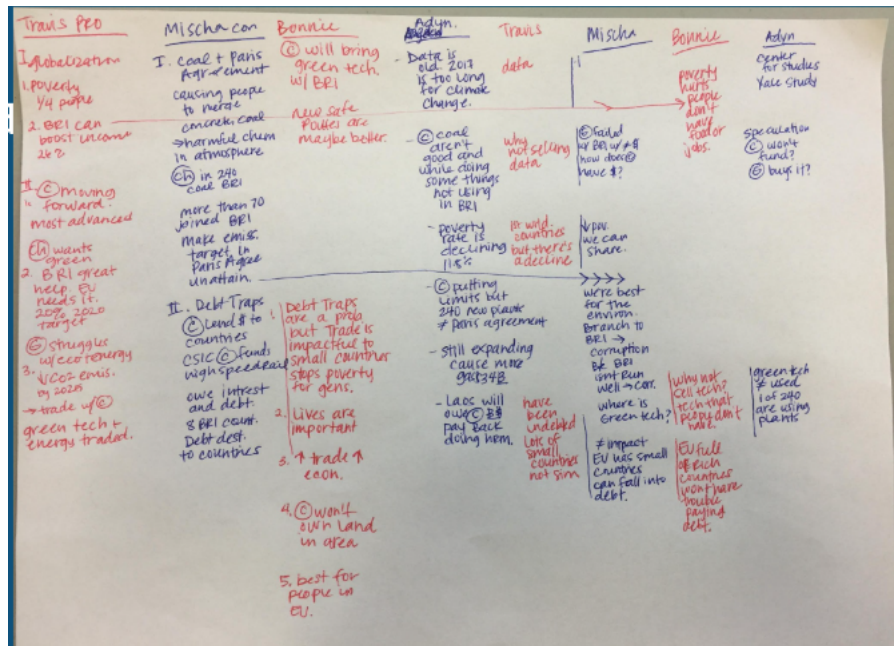 Travis PRO
I. globalization
1. poverty
1/4 people
2. BRI can
boost income
II. © moving
forward.
most advanced
Ch wants
green
2. BRI great
help. EU
needs it.
20% 2020
target
G struggles
w/eco energy
3. ↓ CO2 emis.
by 2025
→ trade w/ ©
green tech +
energy traded.
Mischa con
I. coal + Paris
Agreement
causing people
to merge
concrete, coal
→ harmful chem
in atmosphere
Ch in 240
coal BRI
more than 70
joined BRI
make emiss.
target in
Paris Agree
unattain.
II. Debt Traps
© Lend $ to
countries
CSIC © funds
high speed rail
owe intrest
and debt.
8 BRI count.
Debt dest.
to countries
Bonnie
© will bring
green tech.
w/ BRI
new safe
are
maybe better.
1. Debt Traps
are a prob
but Trade is
impactful to
small countries
stops poverty
for gens.
2. Lives are
important
3. ↑ trade ↑
econ.
4. © won't
own land
in area
5. best for
people in
EU.
Adyn.
- Data is
old. 2017
is too long
for climate
change.
- © coal
aren't
good and
while doing
some things
not using
in BRI
- poverty
rate is
declining
11.8%
- © putting
limits but
240 new plants
≠ Paris agreement
- still expanding
cause more
- Laos will
owe © B$
pay back
doing harm.
Travis
data
why
not selling
data
countries
but there's
a decline
have
been
undebted
lots of
small
countries
not sim
Mischa
G failed
w/ BRI w/ ≠ $
how does ©
have $?
↓ pov.
we can
share.
we're best
for the
environ.
Branch to
BRI →
corruption
B/c BRI
isnt Run
well → corr.
where is
Green tech?
≠ impact
EU has small
countries
can fall into
debt.
Bonnie
poverty
hurts
people
don't
have
food or
jobs.
Why not
sell tech?
tech that
people don't
have.
EU full
of rich
countries
wont have
trouble
paying
debt.
Adyn
center
for studies
Yale study
speculation
© won't
fund?
G buys it?
green tech
≠ used
1 of 240
are using
plants